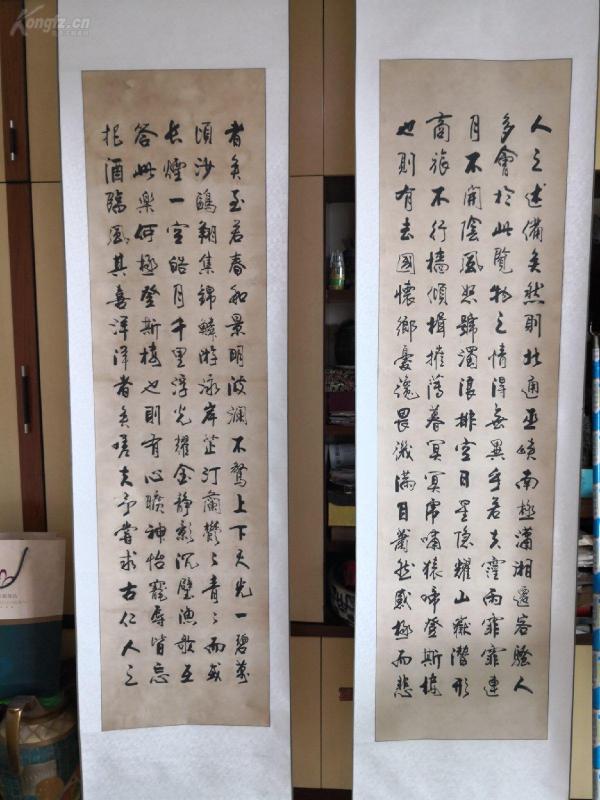 人之述備矣然則北通巫峽南極瀟湘遷客騷人
多會於此覽物之情得無異乎若夫霪雨霏霏連
月不開陰風怒號濁浪排空日星隱耀山嶽潛形
商旅不行檣傾楫摧薄暮冥冥虎嘯猿啼登斯樓
也則有去國懷鄉憂讒畏譏滿目蕭然感極而悲
者矣至若春和景明波瀾不驚上下天光一碧萬
頃沙鷗翔集錦鱗游泳岸芷汀蘭鬱々青々而或
長煙一空皓月千里浮光耀金靜影沉璧漁歌互
答此樂何極登斯樓也則有心曠神怡寵辱皆忘
把酒臨風其喜洋洋者矣嗟夫予嘗求古仁人之
Kongfz.cn